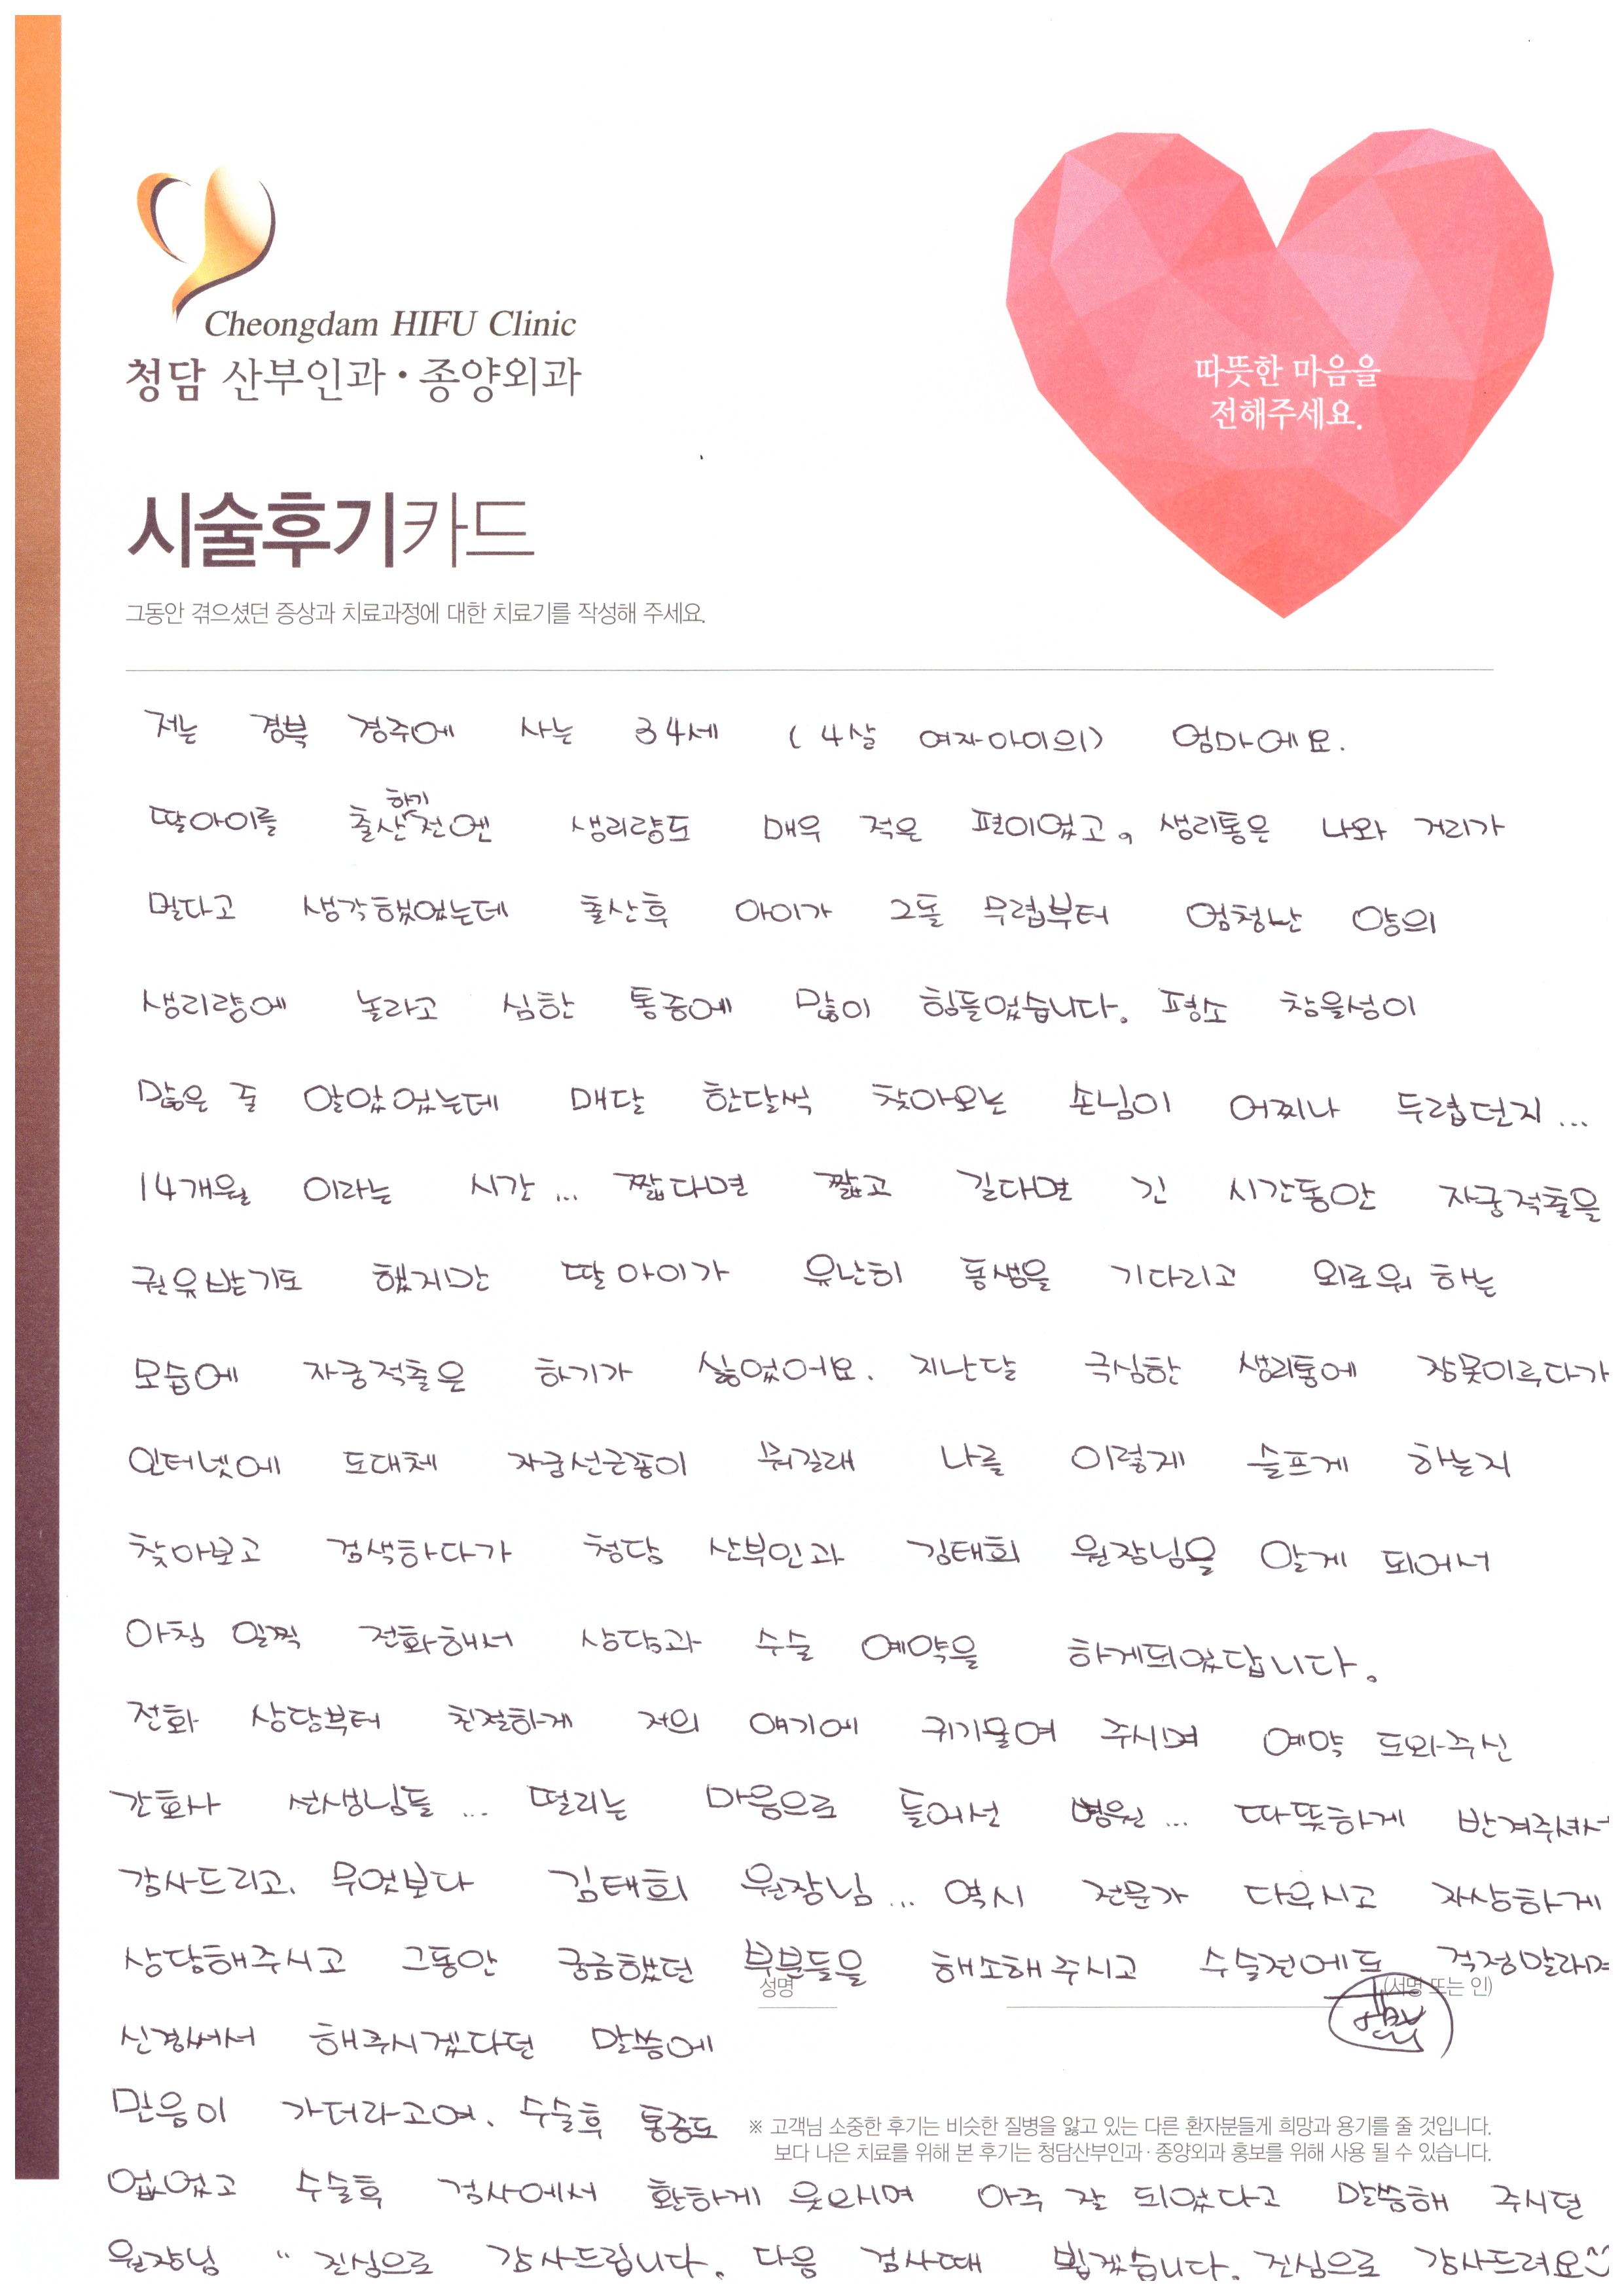 Cheongdam HIFU Clinic
청담 산부인과·종양외과
따뜻한 마음을
전해주세요.
시술후기카드
그동안 겪으셨던 증상과 치료과정에 대한 치료기를 작성해 주세요.
저는 경북 경주에 사는 34세 (4살 여자아이의) 엄마에요.
딸아이를 출산하기전엔 생리량도 매우 적은 편이었고, 생리통은 나와 거리가
멀다고 생각했었는데 출산후 아이가 2돌 무렵부터 엄청난 양의
생리량에 놀라고 심한 통증에 많이 힘들었습니다. 평소 참을성이
많은 줄 알았었는데 매달 한달씩 찾아오는 손님이 어찌나 두렵던지...
14개월 이라는 시간... 짧다면 짧고 길다면 긴 시간동안 자궁적출을
권유받기도 했지만 딸아이가 유난히 동생을 기다리고 외로워 하는
모습에 자궁적출은 하기가 싫었어요. 지난달 극심한 생리통에 잠못이루다가
인터넷에 도대체 자궁선근종이 뭐길래 나를 이렇게 슬프게 하는지
찾아보고 검색하다가 청담 산부인과 김태희 원장님을 알게 되어서
아침 일찍 전화해서 상담과 수술 예약을 하게되었답니다.
전화 상담부터 친절하게 저의 얘기에 귀기울여 주시며 예약 도와주신
간호사 선생님들... 떨리는 마음으로 들어선 병원... 따뜻하게 반겨주셔서
감사드리고, 무엇보다 김태희 원장님... 역시 전문가 다우시고 자상하게
상담해주시고 그동안 궁금했던 부분들을 해소해주시고 수술전에도 걱정말라며
성명 (서명 또는 인)
신경써서 해주시겠다던 말씀에
믿음이 가더라고여. 수술후 통증도
※ 고객님 소중한 후기는 비슷한 질병을 앓고 있는 다른 환자분들게 희망과 용기를 줄 것입니다.
보다 나은 치료를 위해 본 후기는 청담산부인과·종양외과 홍보를 위해 사용 될 수 있습니다.
없었고 수술후 검사에서 환하게 웃으시며 아주 잘 되었다고 말씀해 주시던
원장님 " 진심으로 감사드립니다. 다음 검사때 뵙겠습니다. 진심으로 감사드려요^^